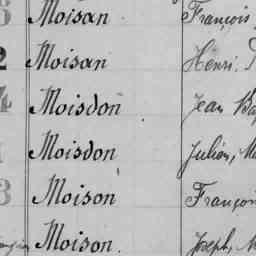 Moisan François
2 Moisan Henri
4 Moisdon Jean
Moisdon Julien,
3 Moison François
Moison. Joseph,